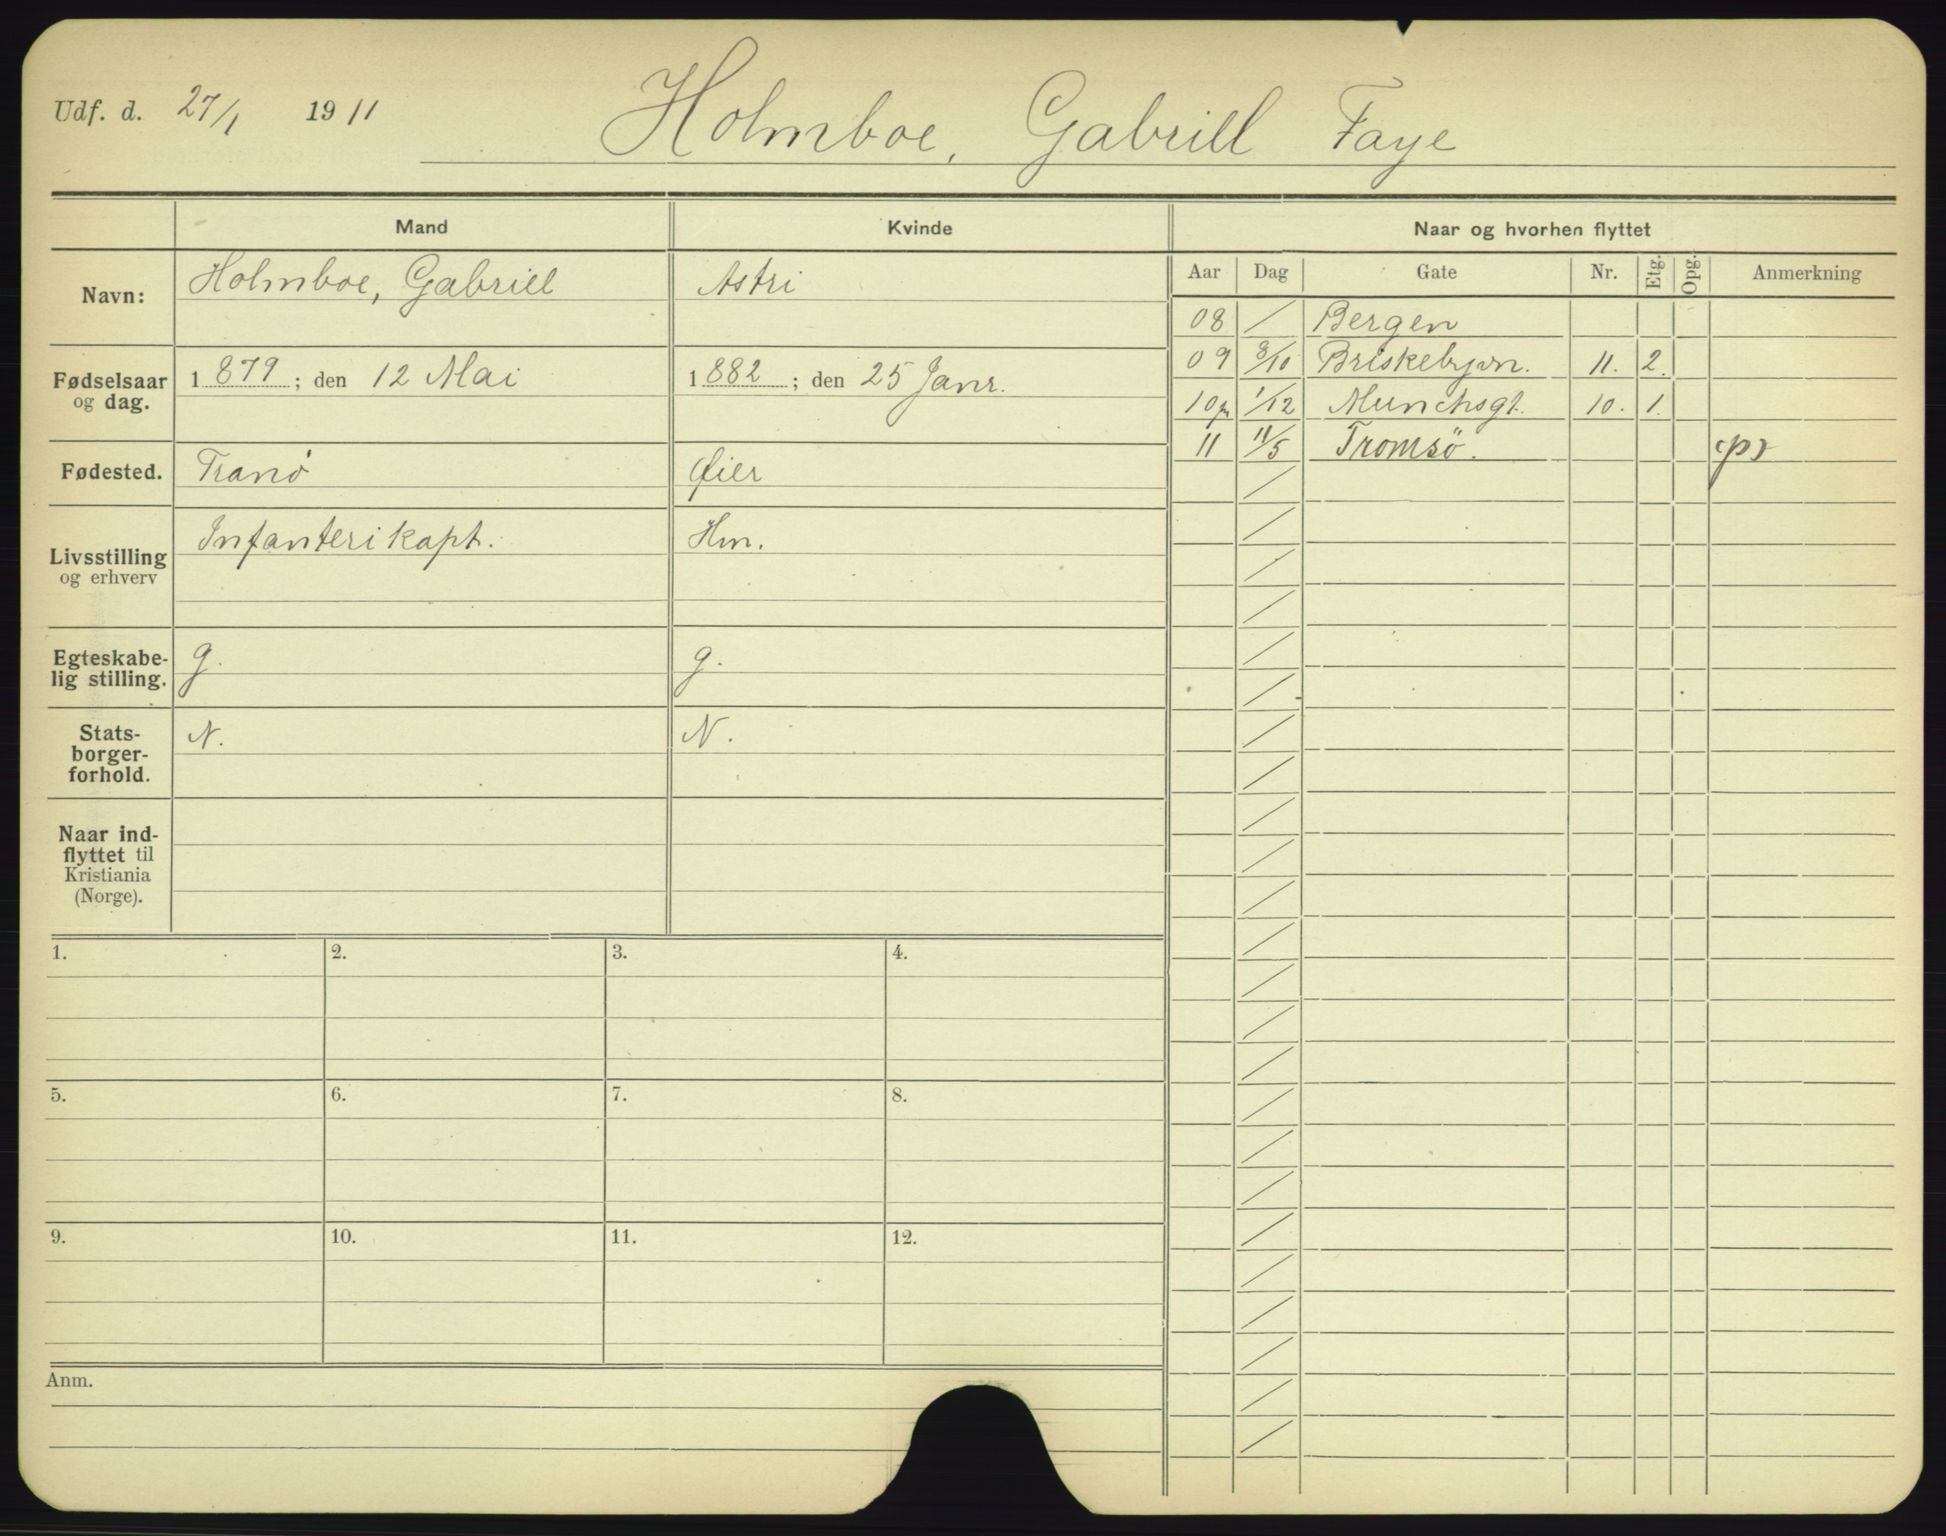 Udf. d. 27/1 1911 Holmboe, Gabriell Faye
Mand Kvinde Naar og hvorhen flyttet
Aar Dag Gate Nr. Etg. Opg. Anmerkning
Navn: Holmboe, Gabriell Astri
Fødselsaar og dag. 1879; den 12 Mai 1882; den 25 Janr.
Fødested. Tranö Øier
Livsstilling og erhverv Infanterikapt. Hm.
Egteskabe-
lig stilling. g. g.
Stats-
borger-
forhold. N. N.
Naar ind-
flyttet til
Kristiania
(Norge).
08 / Bergen
09 8/10 Briskebyvn. 11. 2.
10 1/12 Munchsgt. 10. 1.
11 11/5 Tromsö. (p)
1. 2. 3. 4.
5. 6. 7. 8.
9. 10. 11. 12.
Anm.